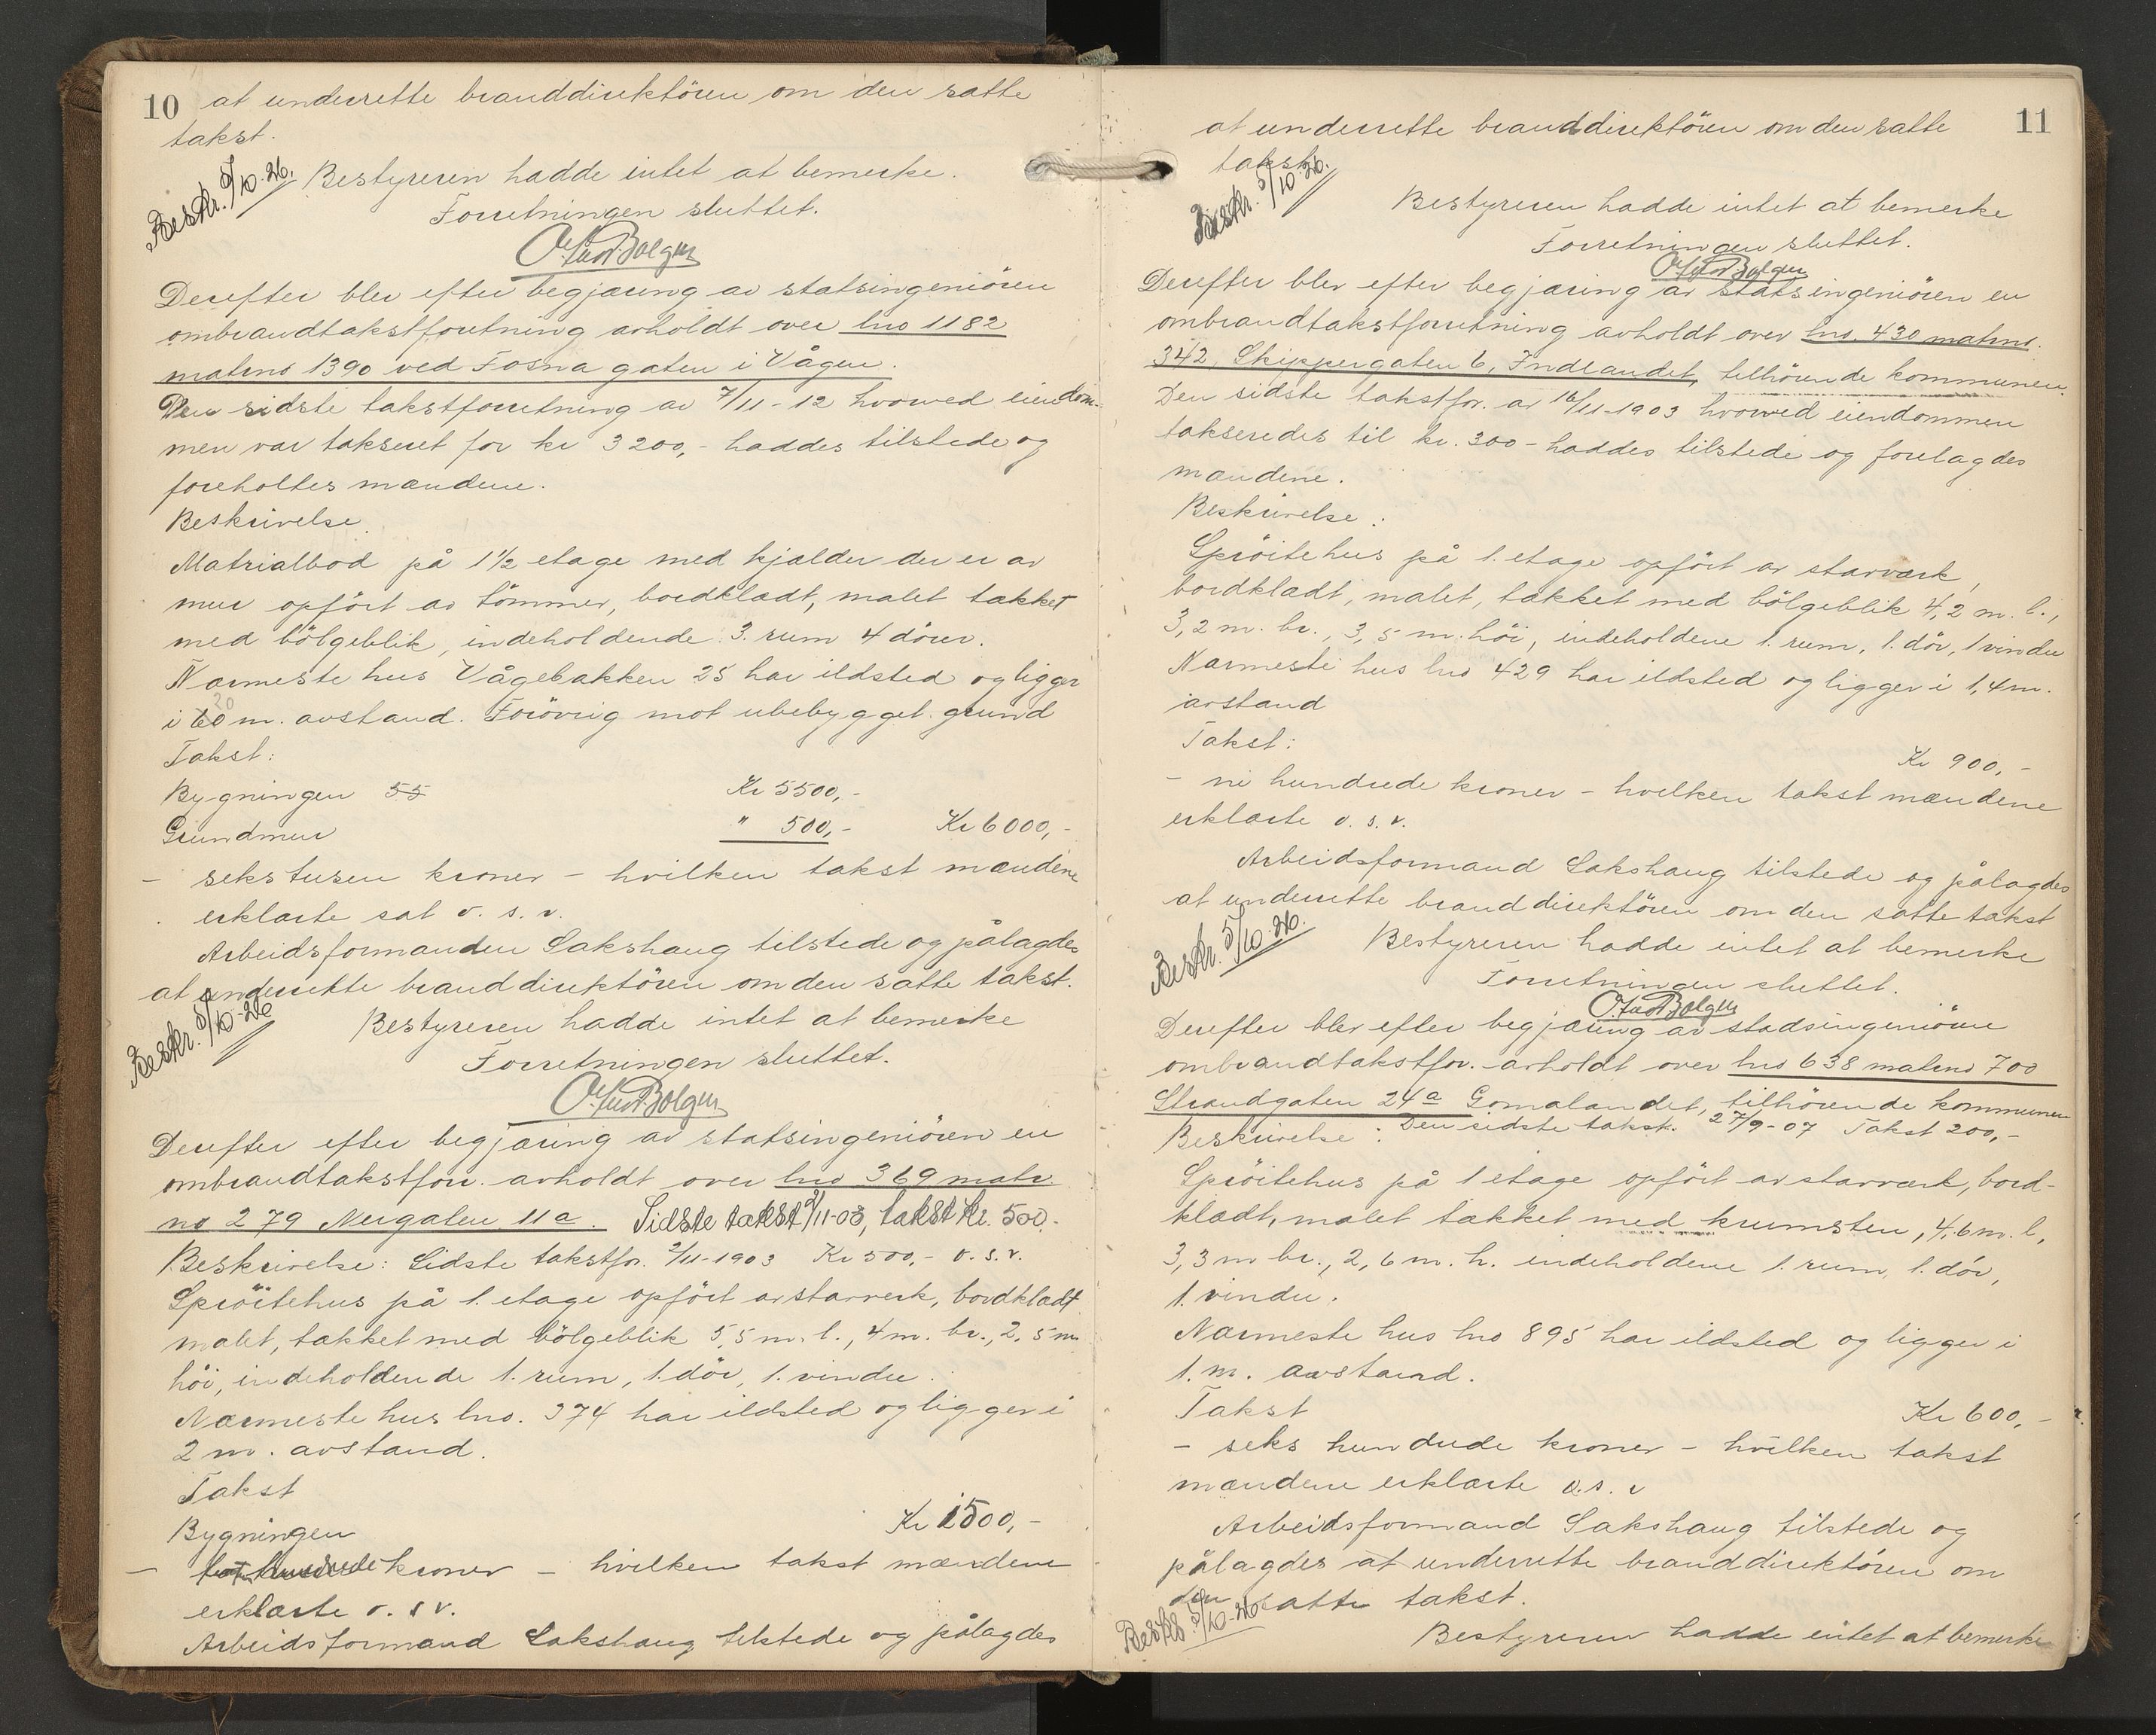 10 at underrette branddirektören om den satte
takst.
Beskr. 5/10-26. Bestyreren hadde intet at bemerke.
Forretningen sluttet.
Derefter blev efter begjæring av statsingeniören
ombrandtakstforretning avholdt over lno 1182
matrno 1390 ved Fosna gaten i Vågen.
Den sidste takstforretning av 7/11-12 hvorved eiendom-
men var takseret for kr 3200,- haddes tilstede og
foreholtes mændene.
Beskrivelse.
Matrialbod på 1½ etage med kjælder der er av
mur opfört av tömmer, bordklædt, malet tækket
med bölgeblik, indeholdende 3. rum 4 dörer.
Nærmeste hus Vågebakken 25 har ildsted og ligger
i 20 m. avstand. Forövrig mot ubebygget grund
Takst:
Bygningen 55 Kr 5500,-
Grundmur " 500,- Kr 6000,-
- seks tusen kroner - hvilken takst mændene
erklærte sat o. s. v.
Arbeidsformanden Sakshaug tilstede og pålagdes
at underrette branddirektören om den satte takst.
Beskr. 5/10-26 Bestyreren hadde intet at bemerke
Forretningen sluttet.
Derefter efter begjæring av statsingeniören en
ombrandtakstforr. avholdt over lno 369 matr.
no 279 Nergaten 11a. Sidste takst 2/11-03, takst Kr. 500.-
Beskrivelse: Sidste takstfor. 2/11-1903 Kr 500,- o. s. v.
Spröitehus på 1. etage opfört av starverk, bordklædt
malet, tækket med bölgeblik 5,5 m. l., 4 m. br., 2,5 m
höi, indeholdende 1. rum, 1. dör, 1. vindu.
Nærmeste hus lno. 374 har ildsted og ligger i
2 m. avstand.
Takst
Bygningen Kr 1500,-
- hundrede kroner - hvilken takst mændene
erklærte o. s v.
Arbeidsformand Sakshaug tilstede og pålagdes
11
at underrette branddirektören om den satte
takst.
Beskr. 5/10-26. Bestyreren hadde intet at bemerke
Forretningen sluttet.
Derefter blev efter begjæring av statsingeniören en
ombrandtakstforretning avholdt over lno. 430 matrno.
342, Skippergaten 6, Indlandet, tilhörende kommunen.
Den sidste takstfor. av 16/11-1903 hvorved eiendommen
takseredes til kr. 300- haddes tilstede og forelagdes
mændene.
Beskrivelse:
Spröitehus på 1. etage opfört av starværk,
bordklædt, malet, tækket med bölgeblik 4,2 m. l.,
3,2 m. br., 3,5 m. höi, indeholdene 1. rum, 1. dör, 1 vindu
Nærmeste hus lno 429 har ildsted og ligger i 1,4 m.
avstand
Takst: Kr 900,-
- ni hundrede kroner - hvilken takst mændene
erklærte o. s. v.
Arbeidsformand Sakshaug tilstede og pålagdes
at underrette branddirektören om den satte takst
Beskr. 5/10-26. Bestyreren hadde intet at bemerke
Forretningen sluttet.
Derefter blev efter begjæring av stadsingeniören
ombrandtakstfor. avholdt over lno 638 matrno 700
Strandgaten 24a Gomalandet, tilhörende kommunen
Beskrivelse: Den sidste takst. 27/9-07 Takst 200,-
Spröitehus på 1 etage opfört av starværk, bord-
klædt, malet tækket med krumsten, 4,6 m. l,
3,3 m br., 2,6 m. h. indeholdene 1. rum, 1. dör,
1. vindu.
Nærmeste hus lno 895 har ildsted og ligger i
1. m. avstand.
Takst Kr 600,-
- seks hundrede kroner - hvilken takst
mændene erklærte o. s. v
Arbeidsformand Sakshaug tilstede og
pålagdes at underrette branddirektören om
den satte takst.
Beskr 5/10-26 Bestyreren hadde intet at bemerke